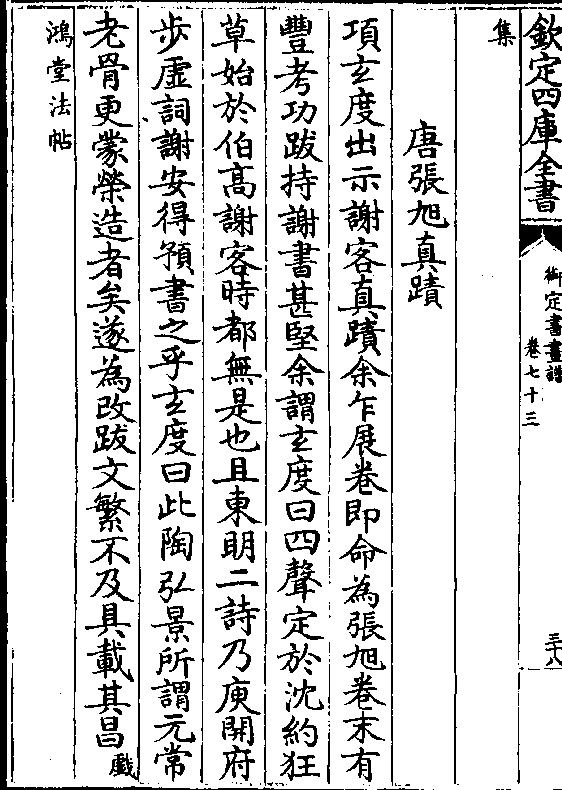 欽定四庫全書
御定書畫譜
卷七十三
三十八
集
唐張旭真蹟
項玄度出示謝客真蹟余乍展卷即命為張旭卷末有
豐考功跋持謝書甚堅余謂玄度曰四聲定於沈約狂
草始於伯高謝客時都無是也且東明二詩乃庾開府
步虛詞謝安得預書之乎玄度曰此陶弘景所謂元常
老骨更蒙榮造者矣遂為改跋文繁不及具載其昌戲
鴻堂法帖